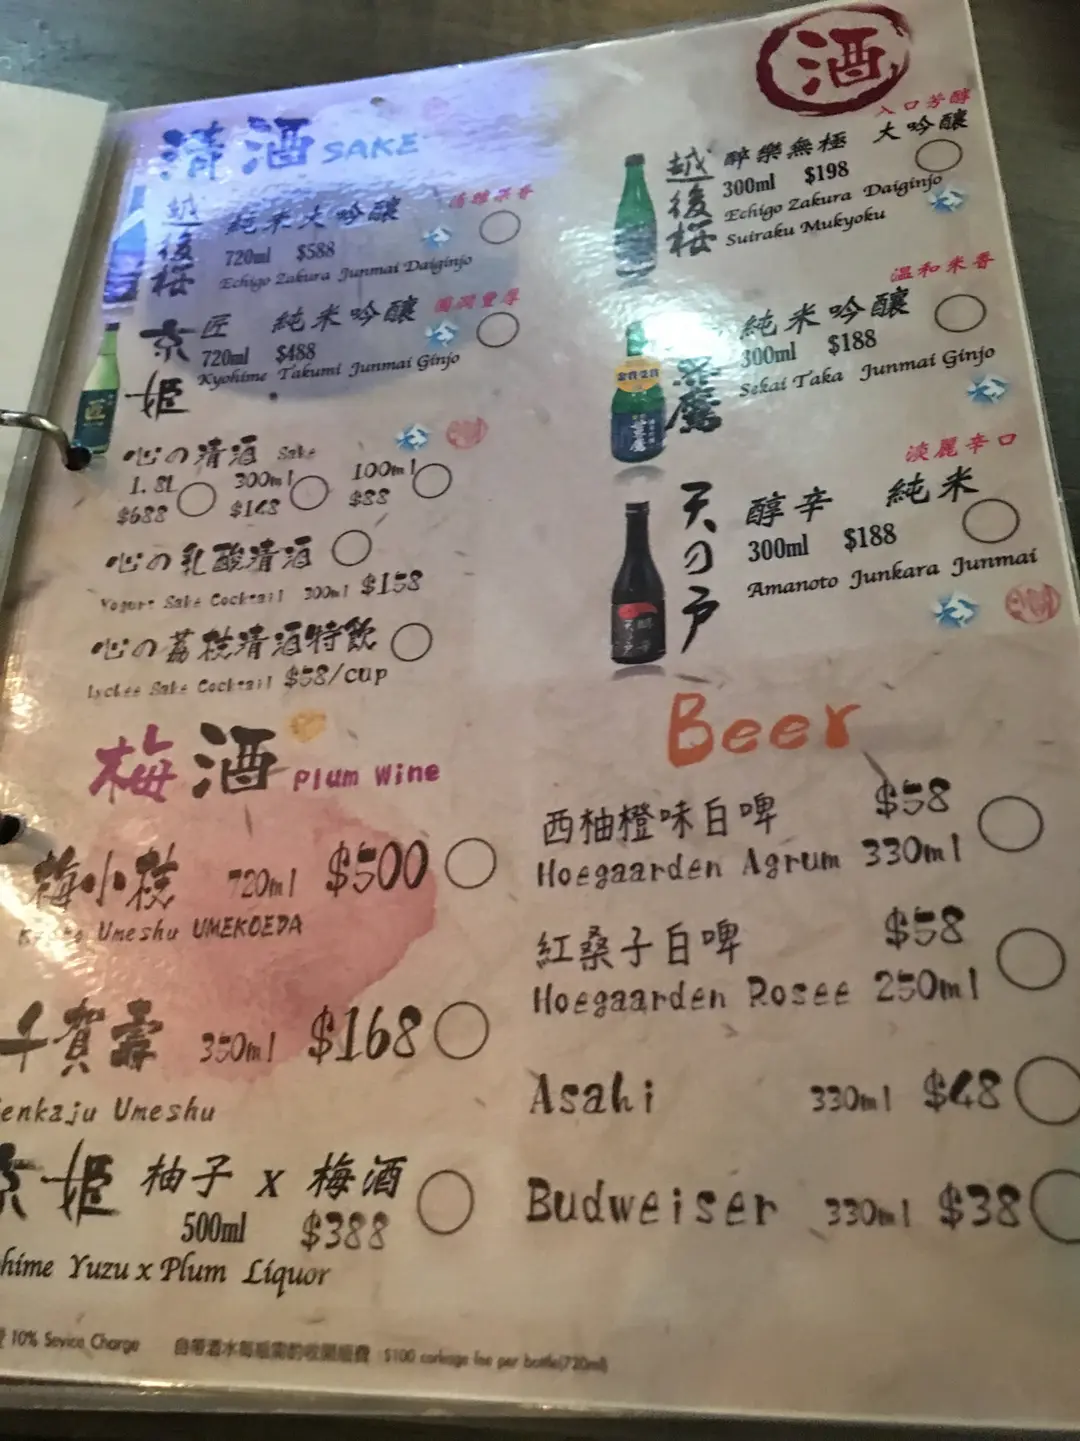 酒
清酒 SAKE
越後桜
純米大吟釀
720ml $588
Echigo Zakura Junmai Daiginjo
京姫
匠 純米吟釀
圓潤豐厚
720ml $488
Kyohime Takumi Junmai Ginjo
心の清酒 Sake
1.8L 300ml 100ml
$688 $148 $88
心の乳酸清酒
Yogurt Sake Cocktail 300ml $158
心の荔枝清酒特飲
Lychee Sake Cocktail $58/cup
梅酒 Plum Wine
梅小枝 720ml $500
Umeshu UMEKOEDA
千賀壽 350ml $168
enkaju Umeshu
京姫 柚子 x 梅酒
500ml $388
hime Yuzu x Plum Liquor
入口芳醇
越後桜
醉樂無極 大吟釀
300ml $198
Echigo Zakura Daiginjo
Suiraku Mukyoku
溫和米香
鷹
純米吟釀
300ml $188
Sekai Taka Junmai Ginjo
金賞受賞
淡麗辛口
天の戸
醇辛 純米
300ml $188
Amanoto Junkara Junmai
Beer
西柚橙味白啤 $58
Hoegaarden Agrum 330ml
紅桑子白啤 $58
Hoegaarden Rosee 250ml
Asahi 330ml $48
Budweiser 330ml $38
10% Sevice Charge 自帶酒水每瓶需酌收開瓶費 $100 corkage fee per bottle(720ml)